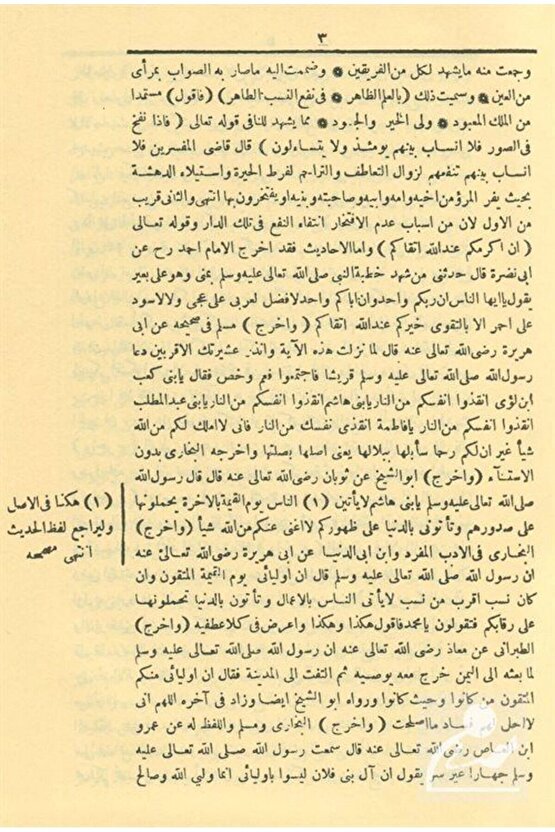 ٣
وجعت منه مايشهد لكل من الفريقين ❁ وضممت اليه ماصار به الصواب بمرأى
من العين ❁ وسميت ذلك (بالعلم الظاهر ❁ فى نفع النسب الطاهر) (فاقول) مستمدا
من الملك المعبود ❁ ولى الخير والجود ❁ مما يشهد للنافى قوله تعالى (فاذا نفخ
فى الصور فلا انساب بينهم يومئذ ولا يتساءلون) قال قاضى المفسرين فلا
انساب بينهم تنفعهم لزوال التعاطف والتراحم لفرط الحيرة واستيلاء الدهشة
بحيث يفر المرؤ من اخيه وامه وابيه وصاحبته وبنيه او يفتخرون بها انتهى والثانى قريب
من الاول لان من اسباب عدم الافتخار انتفاء النفع فى تلك الدار وقوله تعالى
(ان اكرمكم عندالله اتقاكم) واما الاحاديث فقد اخرج الامام احد رح عن
ابى نضرة قال حدثنى من شهد خطبة النبى صلى الله تعالى عليه وسلم بمنى وهو على بعير
يقول ياايها الناس ان ربكم واحد وان اباكم واحد لافضل لعربى على عجمى ولا لاسود
على احمر الا بالتقوى خيركم عندالله اتقاكم (واخرج) مسلم فى صحيحه عن ابى
هريرة رضى الله تعالى عنه قال لما نزلت هذه الآية وانذر عشيرتك الاقربين دعا
رسول الله صلى الله تعالى عليه وسلم قريشا فاجتمعوا فعم وخص فقال يابنى كعب
ابن لؤى انقذوا انفسكم من النار يابنى هاشم انقذوا انفسكم من النار يابنى عبد المطلب
انقذوا انفسكم من النار يافاطمة انقذى نفسك من النار فانى لااملك لكم من الله
شيأ غير ان لكم رحما سأبلها ببلالها يعنى اصلها بصلتها واخرجه البخارى بدون
الاستثناء (واخرج) ابو الشيخ عن ثوبان رضى الله تعالى عنه قال قال رسول الله
صلى الله تعالى عليه وسلم يابنى هاشم لايأتين (١) الناس يوم القيمة بالاخرة يحملونها
على صدورهم وتأتونى بالدنيا على ظهوركم لااغنى عنكم من الله شيأ (واخرج)
البخارى فى الادب المفرد وابن ابى الدنيا عن ابى هريرة رضى الله تعالى عنه
ان رسول الله صلى الله تعالى عليه وسلم قال ان اوليائى يوم القيمة المتقون وان
كان نسب اقرب من نسب لايأتى الناس بالاعمال وتأتون بالدنيا تحملونها
على رقابكم فتقولون يامحمد فاقول هكذا وهكذا واعرض فى كلا عطفيه (واخرج)
الطبرانى عن معاذ رضى الله تعالى عنه ان رسول الله صلى الله تعالى عليه وسلم
لما بعثه الى اليمن خرج معه يوصيه ثم التفت الى المدينة فقال ان اوليائى منكم
المتقون من كانوا وحيث كانوا ورواه ابو الشيخ ايضا وزاد فى آخره اللهم انى
لااحل لهم فساد مااصلحت (واخرج) البخارى ومسلم واللفظ له عن عمرو
ابن العاص رضى الله تعالى عنه قال سمعت رسول الله صلى الله تعالى عليه
وسلم جهارا غير سر يقول ان آل بنى فلان ليسوا باوليائى انما وليي الله وصالح
(١) هكذا فى الاصل
وليراجع لفظ الحديث
انتهى مصححه